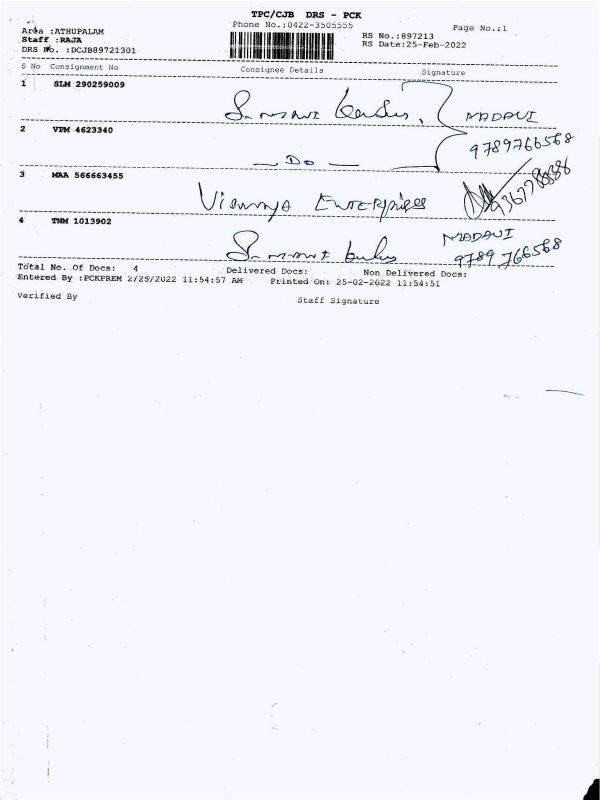 TPC/CJB DRS - PCK
Phone No.:0422-3505555
Page No.:1
Area :ATHUPALAM
Staff :RAJA
DRS No. :DCJB89721301
RS No.:897213
RS Date:25-Feb-2022
S No Consignment No Consignee Details Signature
1 SLM 290259009
MADAVI
2 VPM 4623340
9789766568
— Do —
3 MAA 566663455
ENTERPRISES
4 TNM 1013902
MADAVI
9789 766568
Total No. Of Docs: 4 Delivered Docs: Non Delivered Docs:
Entered By :PCKPREM 2/25/2022 11:54:57 AM Printed On: 25-02-2022 11:54:51
Verified By Staff Signature